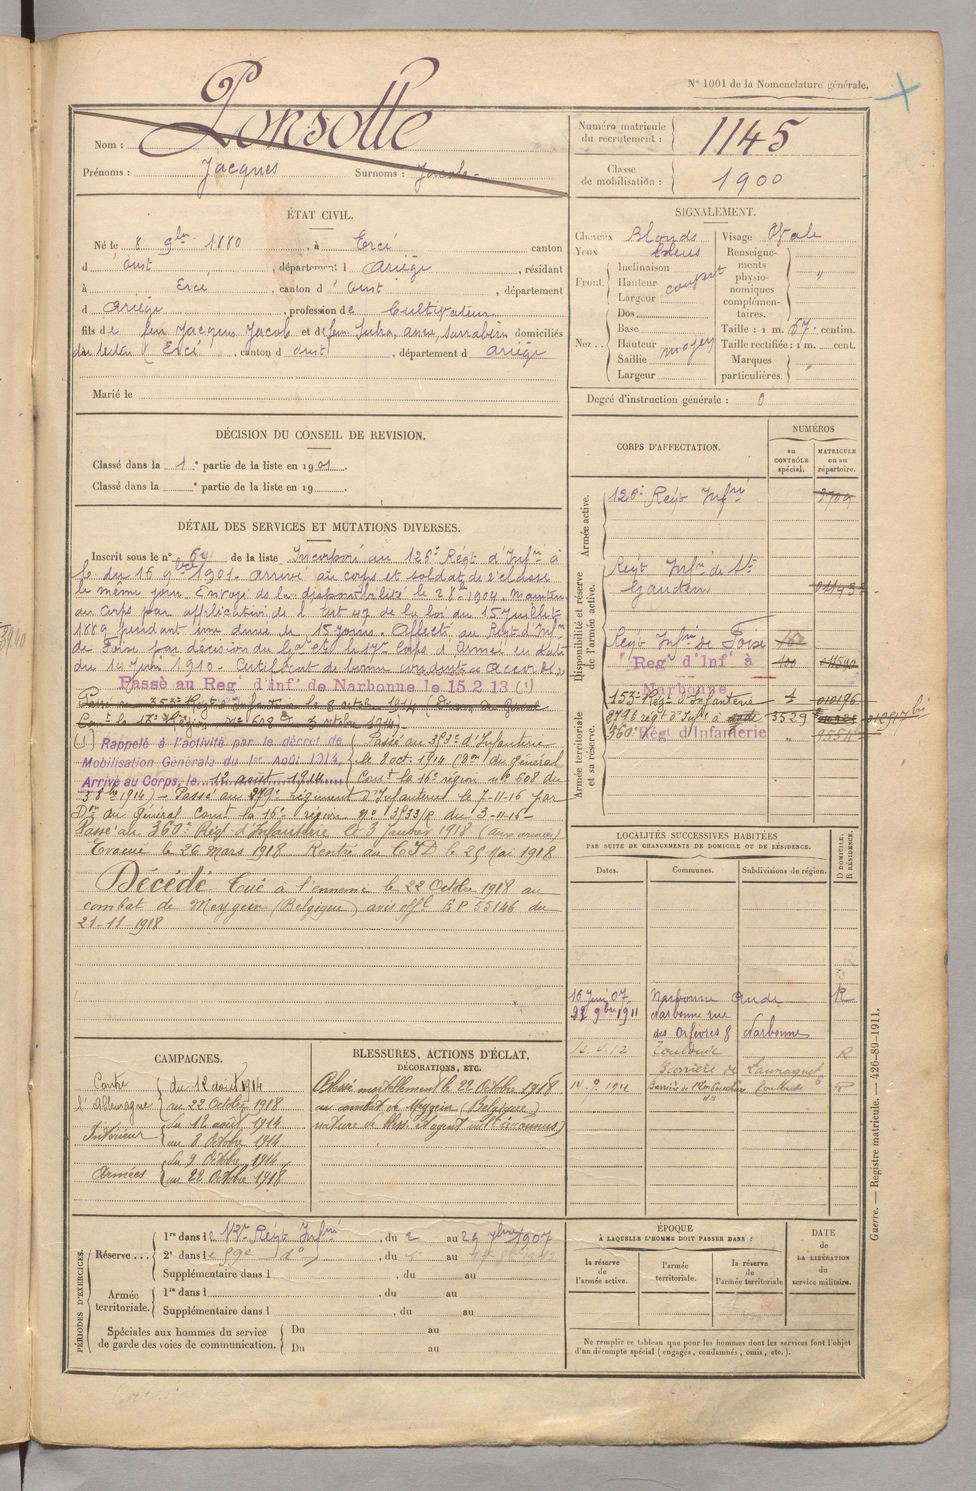 N° 1001 de la Nomenclature générale.
Nom : Ponsolle
Prénoms : Jacques Surnoms : Jacob
Numéro matricule du recrutement : 1145
Classe de mobilisation : 1900
ÉTAT CIVIL.
Né le 8 9bre 1880, à Ercé canton
d'Oust, département d Ariège, résidant
à Ercé, canton d'Oust, département
d Ariège, profession de Cultivateur
fils de feu Jacques Jacob et de feu domiciliés
Ercé, canton d'Oust, département d Ariège
Marié le
SIGNALEMENT.
Cheveux Blonds
Yeux bleus
Front. Inclinaison
Hauteur
Largeur
Nez.. Dos
Base
Hauteur moyen
Saillie
Largeur
Visage Ovale
Renseignements physionomiques complémentaires. "
Taille : 1 m. 67 centim.
Taille rectifiée : 1 m. cent.
Marques particulières. "
Degré d'instruction générale : 0
DÉCISION DU CONSEIL DE REVISION.
Classé dans la 1e partie de la liste en 1901.
Classé dans la e partie de la liste en 19
DÉTAIL DES SERVICES ET MUTATIONS DIVERSES.
Inscrit sous le n° de la liste Incorporé au 126e Régt d'Infrie à
c. du 15 9bre 1901. Arrivé au corps et soldat de 2e classe
le même jour. Envoyé de la disponibilité le 1904. Maintenu
au Corps par application de l'art 47 de la loi du 15 juillet
1889 pendant une durée de 15 jours. Affecté au Régt d'Infrie
de Foix par décision du Gal Ct le 17e Corps d'Armée en date
du 14 Juin 1910. Certificat de bonne conduite "Accordé"
Passé au Reg' d'inf' de Narbonne le 15.2.13 (1)
Passé au 353e Régt d'Infanterie le 8 octobre 1914 (Décision du Général
Comt la 16e Région n° 608 du 3 octobre 1914)
(1) Rappelé à l'activité par le décret de Mobilisation Générale du 1er Août 1914,
Arrivé au Corps, le 12 août 1914
Passé au 353e d'Infanterie
le 8 oct. 1914 (Don du Général
Comt la 16e région n° 608 du
3 8bre 1914) – Passé au 279e régiment d'Infanterie le 7-11-16 par
Don du Général Comt la 16e région N° 3933/R du 3-11-16
Passé au 360e Régt d'Infanterie le 3 janvier 1918 (aux armées)
Évacué le 26 Mars 1918 Rentré au CID le 25 Mai 1918
Décédé Tué à l'ennemi le 22 Octobre 1918 au
combat de Meygem (Belgique) avis offel B P 55146 du
21-11-1918
CORPS D'AFFECTATION.
NUMÉROS
au CONTRÔLE spécial.
MATRICULE ou au répertoire.
Armée active.
126e Régt Infrie
Disponibilité et réserve de l'armée active.
Régt Infrie de St Gaudens
Régt Infrie de Foix
Reg' d'Inf' à Narbonne
153e Régt d'Infanterie 010196
279e régt d'Infie 3529
360e Régt d'Infanterie "
Armée territoriale et sa réserve.
LOCALITÉS SUCCESSIVES HABITÉES
PAR SUITE DE CHANGEMENTS DE DOMICILE OU DE RÉSIDENCE.
Dates. Communes. Subdivisions de région. D DOMICILE. R RÉSIDENCE.
16 Juin 07 Narbonne Aude R
22 9bre 1911 Narbonne rue
des Orfèvres 8 Narbonne
Toulouse R
Barrière de Launaguet
Toulouse R
CAMPAGNES.
Contre l'Allemagne du 12 août 1914
au 22 Octobre 1918
Intérieur du 12 août 1914
au 8 Octobre 1914
Armées du 9 Octobre 1914
au 22 Octobre 1918
BLESSURES, ACTIONS D'ÉCLAT,
DÉCORATIONS, ETC.
Blessé mortellement le 22 Octobre 1918
au combat de Meygem (Belgique)
nature de bless. et agent vulnt inconnus)
PÉRIODES D'EXERCICES.
Réserve... 1re dans le Régt Infrie, du 2 au 29 7bre 1907
2e dans le 59e do, du au
Supplémentaire dans l , du au
Armée territoriale. 1re dans l , du au
Supplémentaire dans l , du au
Spéciales aux hommes du service de garde des voies de communication. Du au
Du au
ÉPOQUE
À LAQUELLE L'HOMME DOIT PASSER DANS :
la réserve de l'armée active.
l'armée territoriale.
la réserve de l'armée territoriale
DATE de LA LIBÉRATION du service militaire.
Ne remplir ce tableau que pour les hommes dont les services font l'objet
d'un décompte spécial (engagés, condamnés, omis, etc.).
Guerre. — Registre matricule. — 426-89-1911.